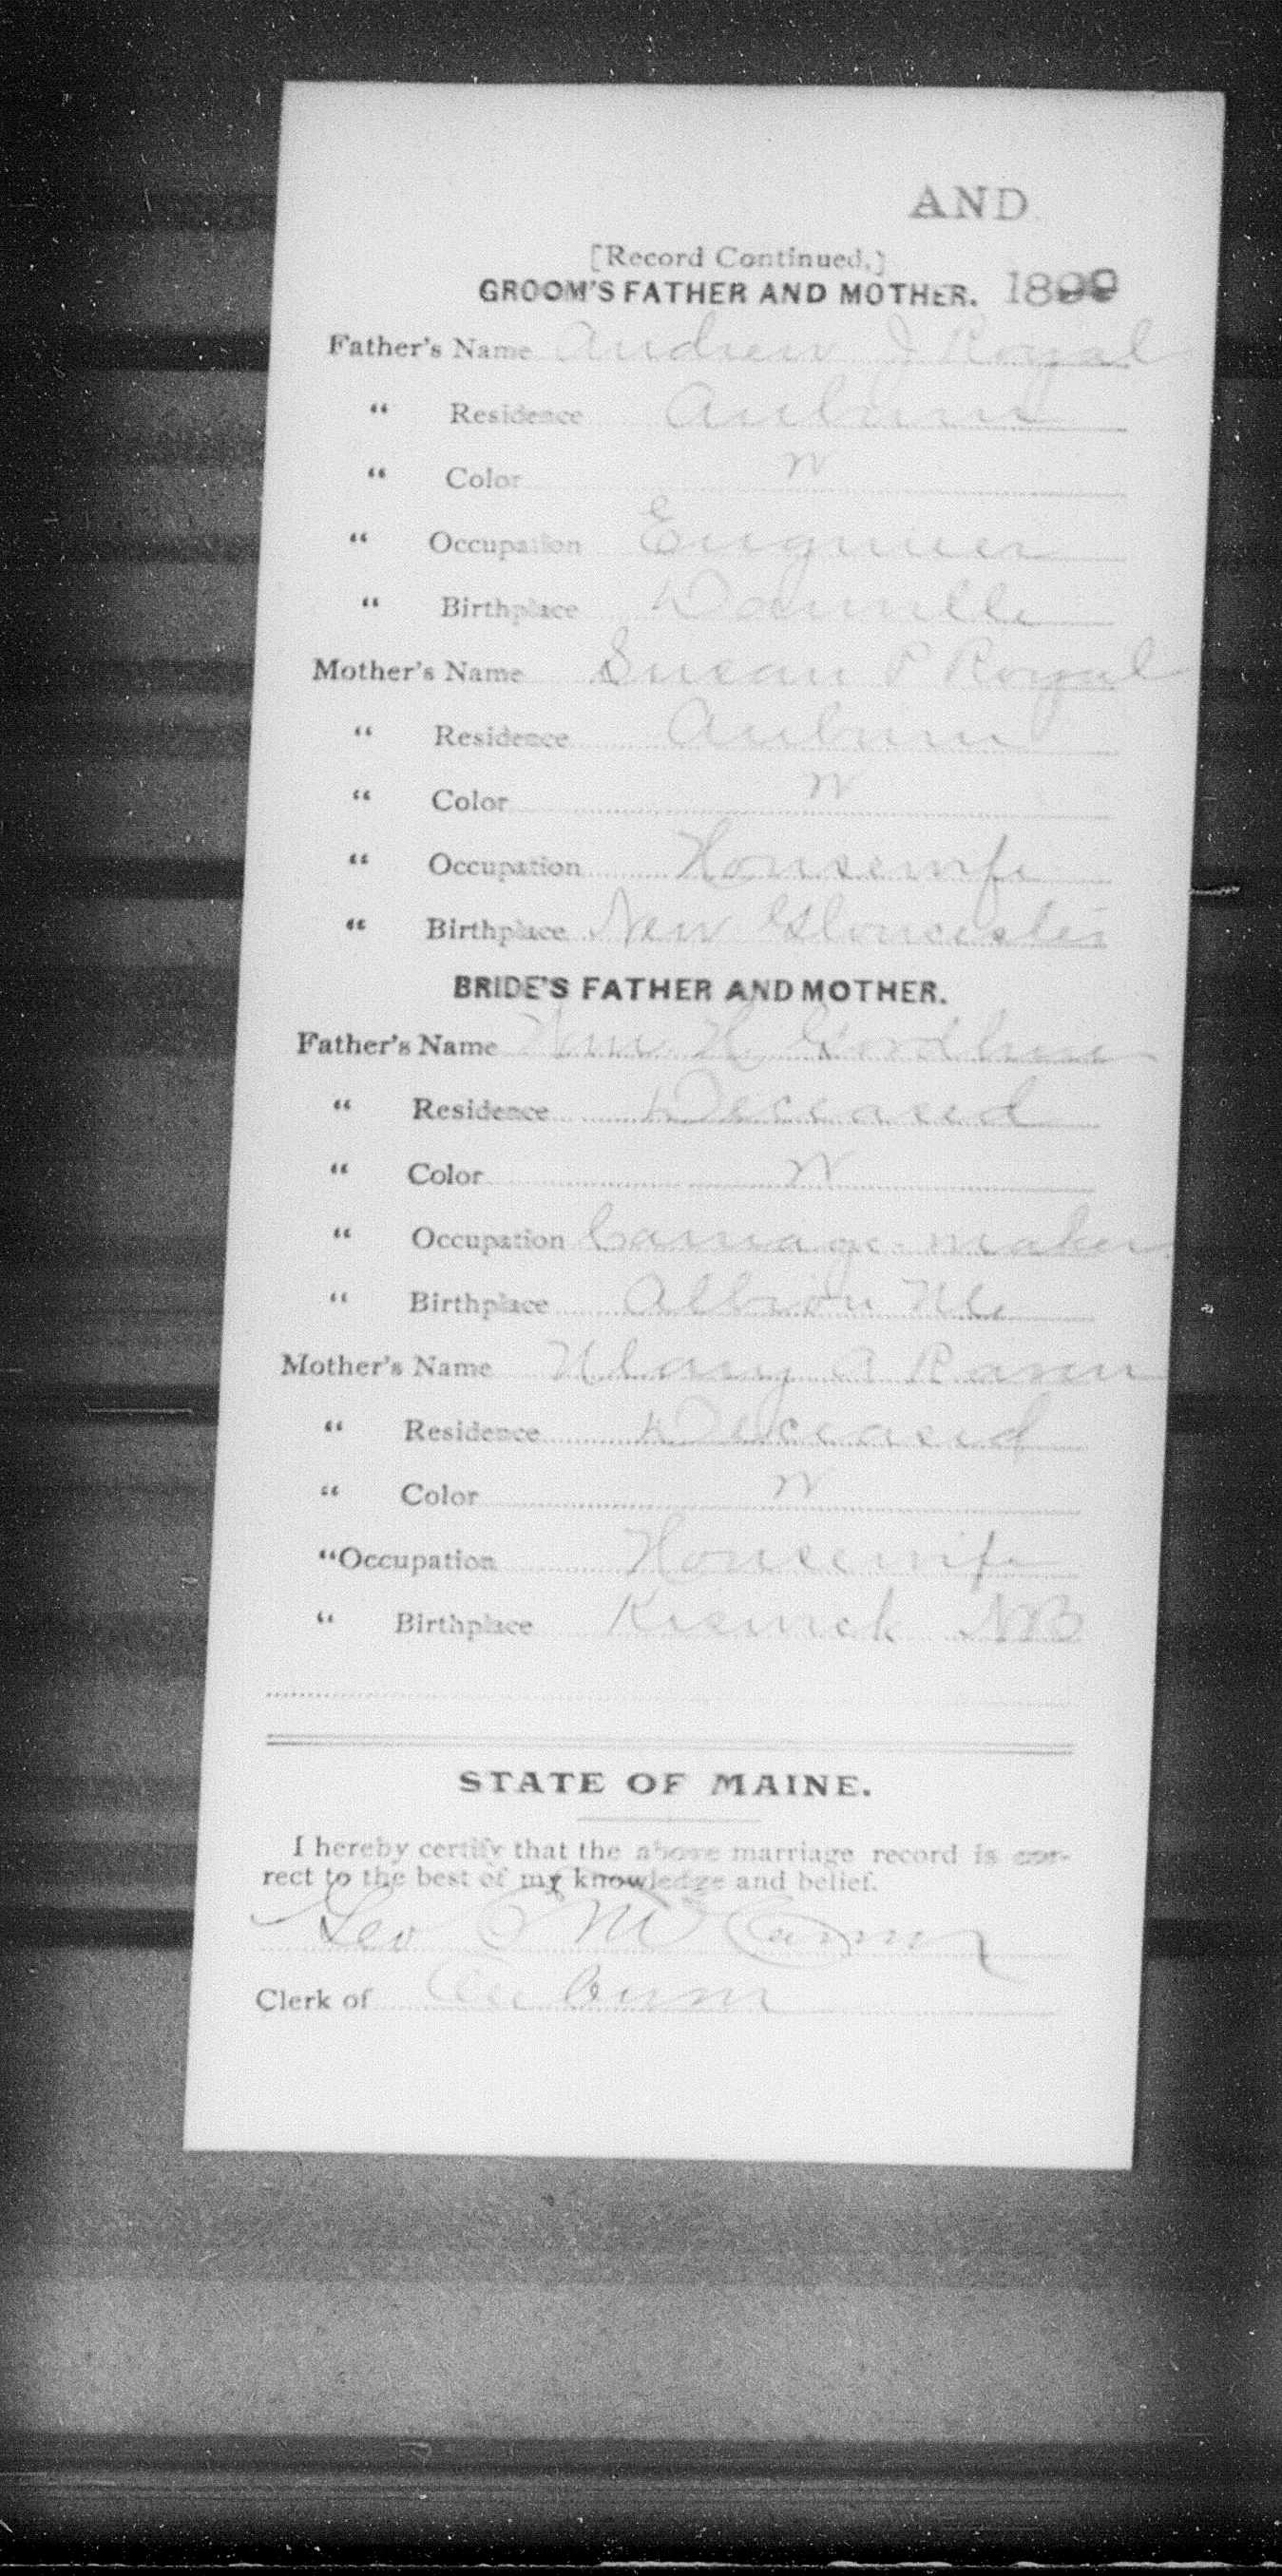 AND
[Record Continued.]
GROOM'S FATHER AND MOTHER. 1899
Father's Name Andrew J Royal
" Residence Auburn
" Color W
" Occupation Engineer
" Birthplace Danville
Mother's Name Susan P Royal
" Residence Auburn
" Color W
" Occupation Housewife
" Birthplace New Gloucester
BRIDE'S FATHER AND MOTHER.
Father's Name Wm H. Goodhue
" Residence Deceased
" Color W
" Occupation Carriage-maker
" Birthplace Albion Me
Mother's Name Mary A
" Residence Deceased
" Color W
"Occupation Housewife
" Birthplace Keswick NB
STATE OF MAINE.
I hereby certify that the above marriage record is cor-
rect to the best of my knowledge and belief.
Geo
Clerk of Auburn